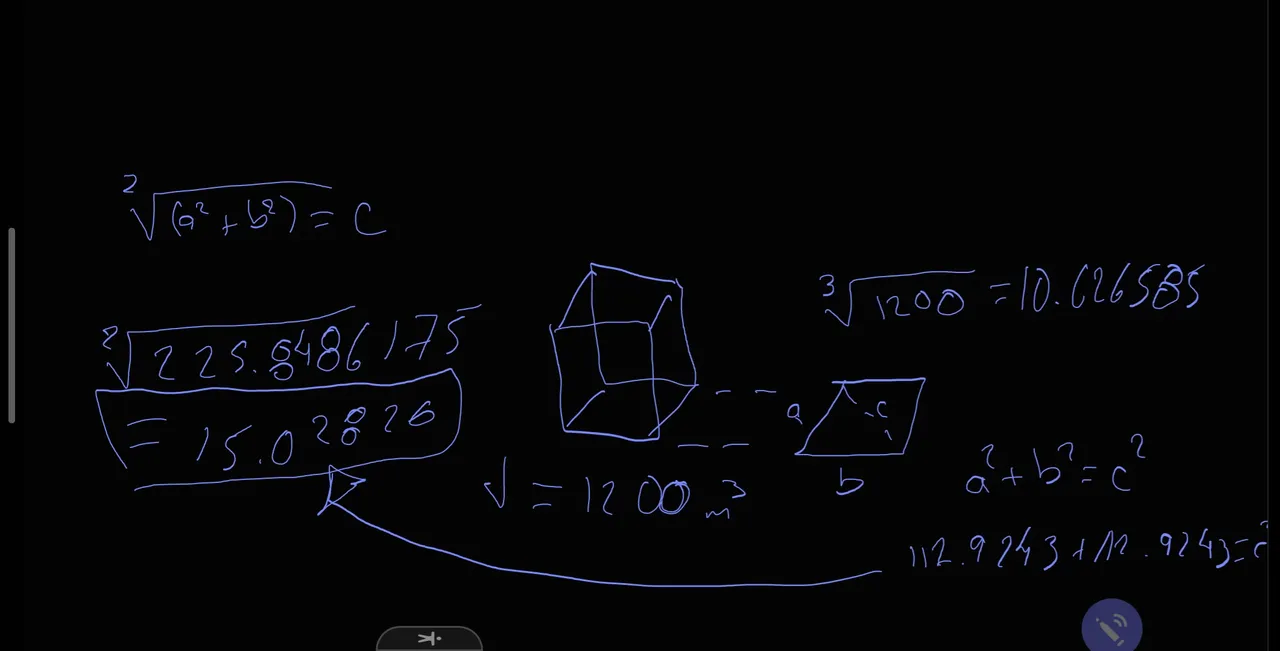 ²√(a² + b²) = c
³√1200 = 10.626585
²√225.8486175
= 15.02826
a
c
b
V = 1200 m³
a² + b² = c²
112.9243 + 112.9243 = c²